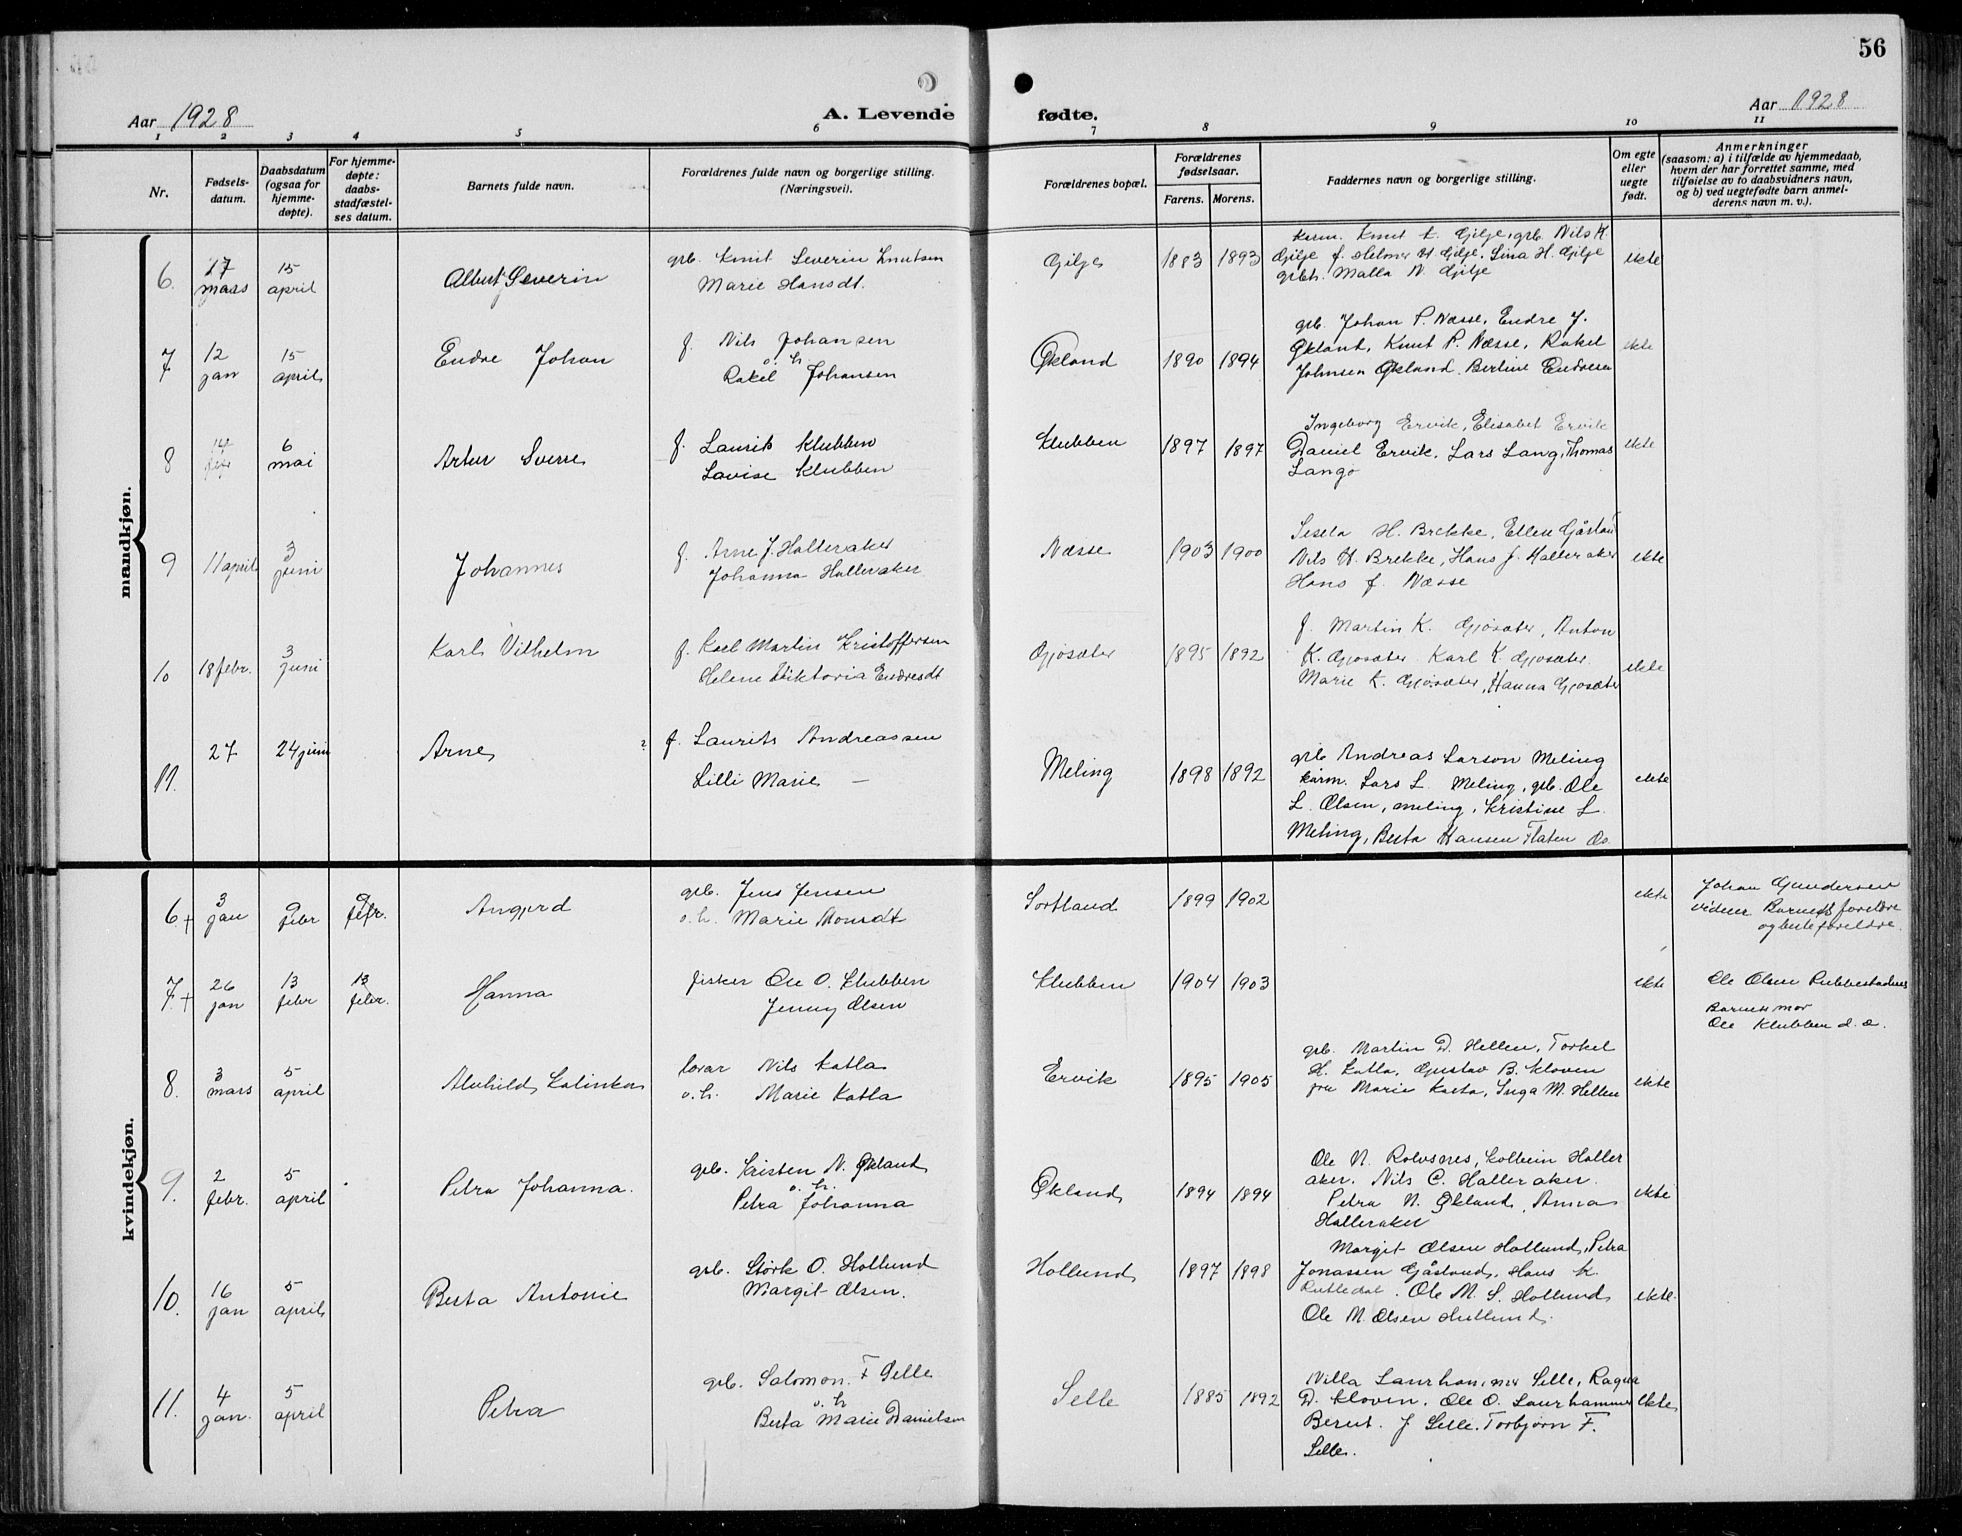 56
Aar 1928
A. Levende fødte.
Aar 1928
1 2 3 4 5 6 7 8 9 10 11
Nr.
Fødsels-
datum.
Daabsdatum
(ogsaa for
hjemme-
døpte).
For hjemme-
døpte:
daabs-
stadfæstel-
ses datum.
Barnets fulde navn.
Forældrenes fulde navn og borgerlige stilling.
(Næringsvei).
Forældrenes bopæl.
Forældrenes
fødselsaar.
Farens. Morens.
Faddernes navn og borgerlige stilling.
Om egte
eller
uegte
født.
Anmerkninger
(saasom: a) i tilfælde av hjemmedaab,
hvem der har forrettet samme, med
tilføielse av to daabsvidners navn,
og b) ved uegtefødte barn anmel-
derens navn m. v.).
mandkjøn.
6. 17 mars 15 april
Albert Severin
grb. Knut Severin Knutsen
Marie Hansdt.
Gilje 1883 1893
Knut K. Gilje, grb. Nils K.
Gilje f. Helmer H. Gilje, Lina H. Gilje
Malla N. Gilje
ekte
7 12 jan 15 april
Endre Johan
f. Nils Johansen
o. h.
Rakel Johansen
Økland 1890 1894
grb. Johan P. Næsse, Endre J.
Økland, Knut P. Næsse, Rakel
Johnsen Økland. Berline Endresen
ekte
8 14 6 mai
Artur Sverre
f. Laurits Klubben
Lovise Klubben
Klubben 1897 1897
Ingeborg Ervik, Elisabet Ervik
Daniel Ervik, Lars Lang, Thomas
Langø
ekte
9 11 april 3 juni
Johannes
f. Arne J. Halleraker
Johanna Halleraker
Næsse 1903 1900
Sesela H. Brekke, Ellen Gåsland
Nils H. Brekke, Hans J. Halleraker
Hans J. Næsse
ekte
10 18 febr. 3 juni
Karl Vilhelm
f. Karl Martin Kristoffersen
Helene Viktoria Endresdt
Gjøsæter 1895 1892
f. Martin K. Gjøsæter, Anton
K. Gjøsæter Karl K. Gjøsæter
Marie K. Gjøsæter, Hanna Gjøsæter
ekte
11. 27 24 juni
Arne ?
f. Laurits Andreassen
Lilli Marie —
Meling 1898 1892
grb Andreas Larson Meling
Lars L. Meling, grb. Ole
L. Olsen, Meling, Kristine L.
Meling, Berta Hansen Flaten Os
ekte
kvindekjøn.
6+ 3 jan 9 febr 9 febr.
Angjerd
grb. Jens Jensen
o. h. Marie Monsdt
Sortland 1899 1902
ekte
Johan Gundersen
vidner Barnets foreldre
og besteforeldre.
7.+ 26 jan 13 febr 13 febr.
Hanna
fisker Ole O. Klubben
Jenny Olsen
Klubben 1904 1903
ekte
Ole Olsen Rubbestadnes
Barnets mor
Ole Klubben d. e.
8. 3 mars 5 april
Alvhild Katinka
Nils Katla
o. h. Marie Katla
Ervik 1895 1905
grb. Martin D. Hellen, Torkel
H. Katla, Gustav B. Kloven
fru Marie Katla, Inga M. Hellen
ekte
9. 2 febr. 5 april
Petra Johanna.
grb. Kristen N. Økland
o. h.
Petra Johanna
Økland 1894 1894
Ole N. Rolvsnes, Kolbein Haller
aker. Nils C. Halleraker.
Petra N. Økland, Anna
Halleraker
ekte
10. 16 jan 5 april
Berta Antonie
grb. Størk O. Hollund
Margit Olsen.
Hollund 1897 1898
Margit Olsen Hollund, Petra
Jonassen Gåsland, Hans K.
Rutledal. Ole M. S. Hollund
Ole M. Olsen Hollund.
ekte.
11. 4 jan. 5 april
Petra
grb. Salomon F Selle
o. h
Berta Marie Danielsen
Selle 1885 1892
Nilla Laurhammer Selle, Ragna
D. Kloven, Ole O. Laurhammer
Berent J Selle. Torbjørn F.
Selle.
ekte